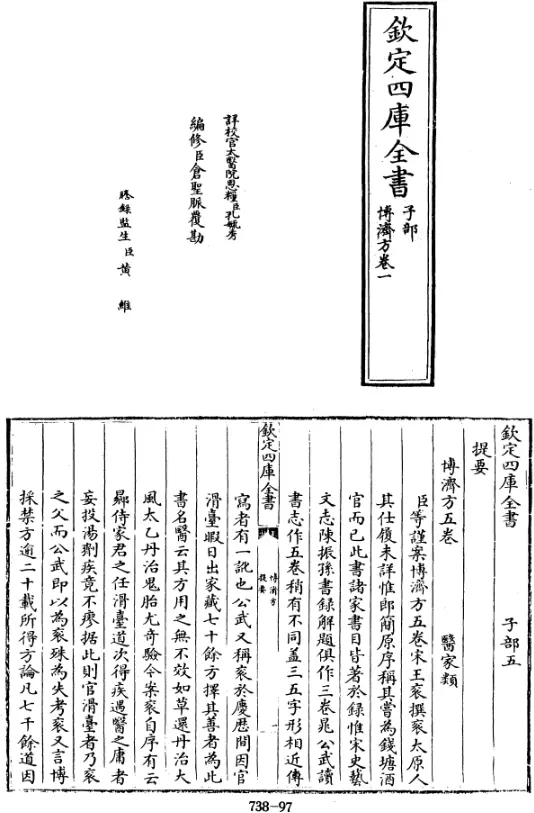 欽定四庫全書
子部
博濟方卷一
詳校官太醫院恩糧臣孔毓秀
編修臣倉聖脈覆勘
謄錄監生臣黃維
欽定四庫全書 子部五
提要
博濟方五卷 醫家類
臣等謹案博濟方五卷宋王袞撰袞太原人
其仕履未詳惟郎簡原序稱其嘗為錢塘酒
官而已此書諸家書目皆著於錄惟宋史藝
文志陳振孫書錄解題俱作三卷晁公武讀
書志作五卷稍有不同蓋三五字形相近傳
欽定四庫全書
博濟方
提要
寫者有一訛也公武又稱袞於慶歷間因官
滑臺暇日出家藏七十餘方擇其善者為此
書名醫云其方用之無不效如草還丹治大
風太乙丹治鬼胎尤奇驗今案袞自序有云
曏侍家君之任滑臺道次得疾遇醫之庸者
妄投湯劑疾竟不瘳据此則官滑臺者乃袞
之父而公武即以為袞殊為失考袞又言博
採禁方逾二十載所得方論凡七千餘道因
738-97